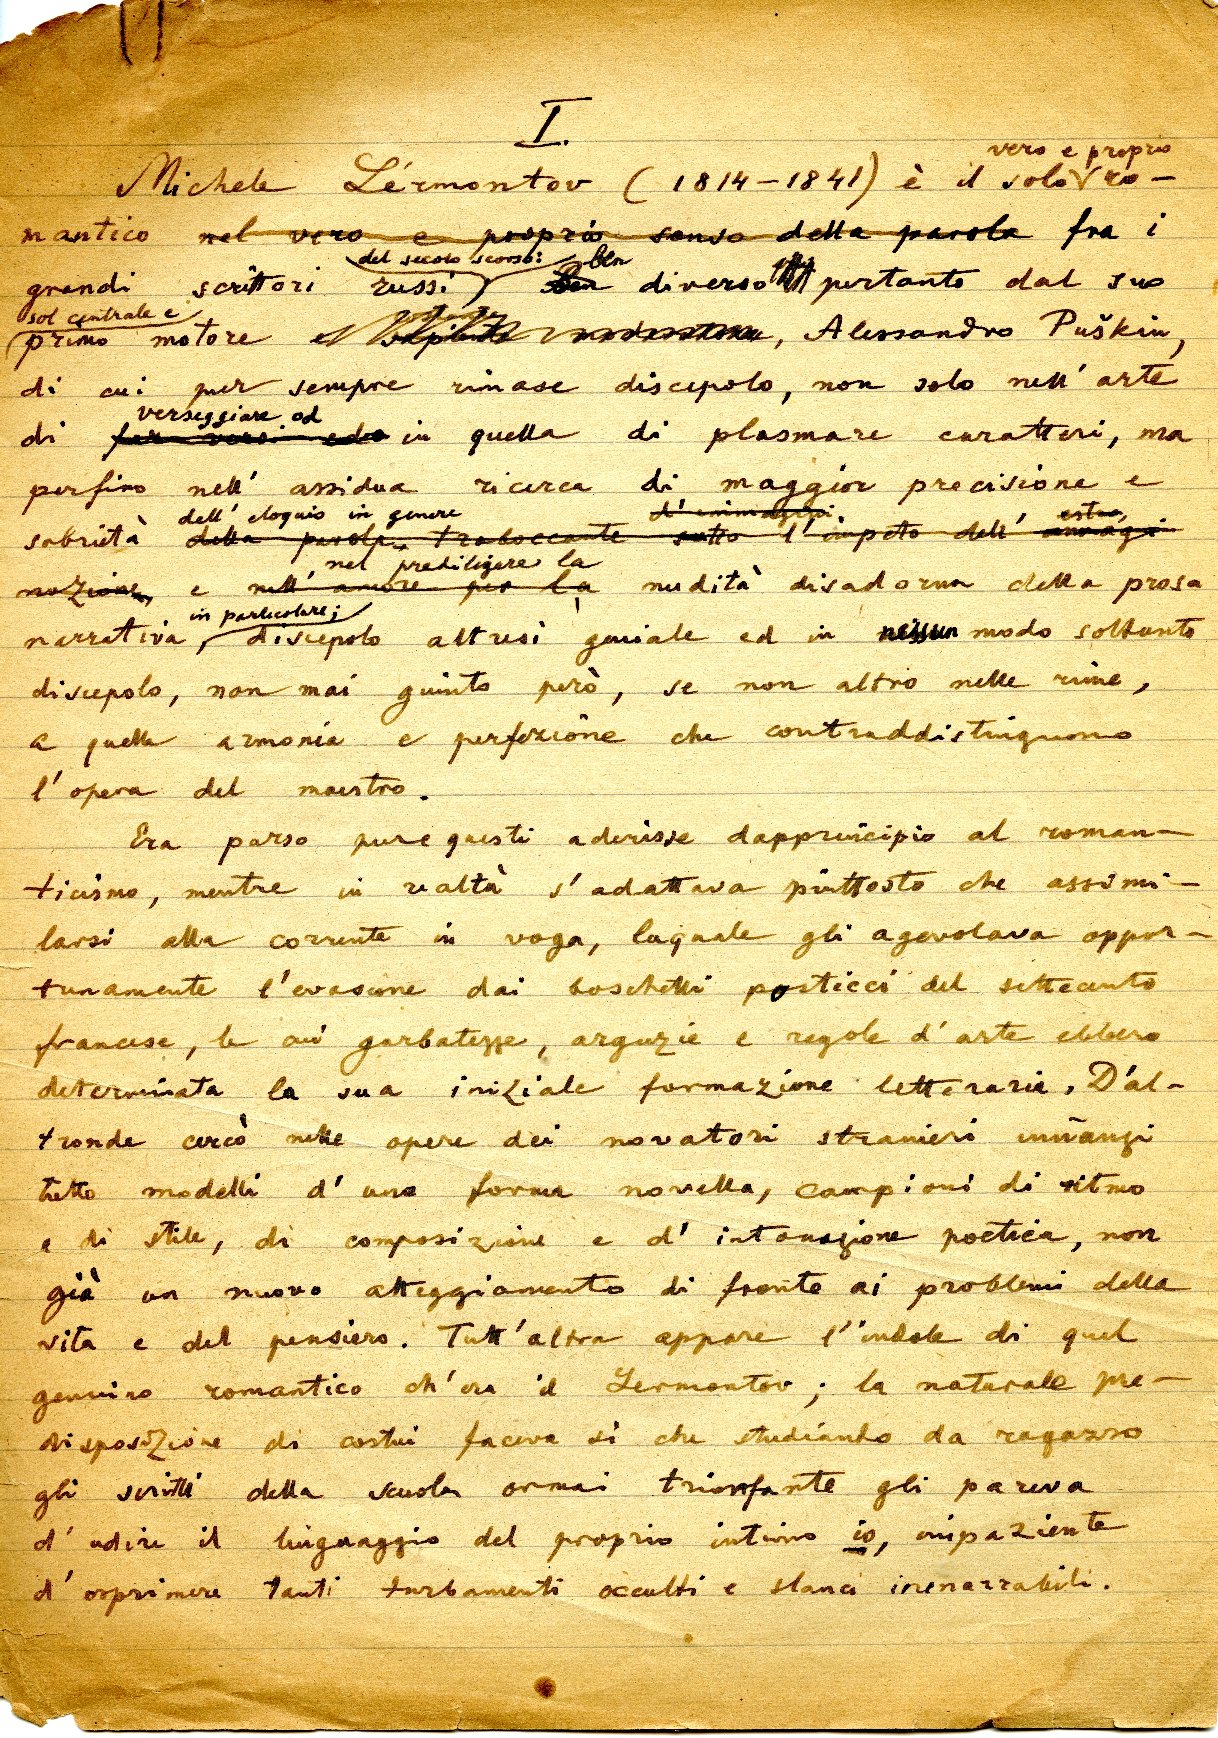 I.
vero e proprio
Michele Lérmontov (1814-1841) è il solo ro-
mantico nel vero e proprio senso della parola fra i
del secolo scorso: ben
grandi scrittori russi ben diverso pertanto dal suo
sol centrale e
primo motore e, Alessandro Puškin,
di cui per sempre rimase discepolo, non solo nell'arte
verseggiare od
di far versi ed in quella di plasmare caratteri, ma
perfino nell'assidua ricerca di maggior precisione e
dell'eloquio in genere d'immagini estro,
sobrietà della parola, traboccante sotto l'impeto dell'immagi
nel prediligere la
nazione, e nell'amore per la nudità disadorna della prosa
in particolare;
narrativa, discepolo altresì geniale ed in nessun modo soltanto
discepolo, non mai giunto però, se non altro nelle rime,
a quella armonia e perfezione che contraddistinguono
l'opera del maestro.
Era parso pure questi aderisse dapprincipio al roman-
ticismo, mentre in realtà s'adattava piuttosto che assimi-
larsi alla corrente in voga, laquale gli agevolava oppor-
tunamente l'evasione dai boschetti posticci del settecento
francese, le cui garbatezze, arguzie e regole d'arte ebbero
determinata la sua iniziale formazione letteraria. D'al-
tronde cercò nelle opere dei novatori stranieri innanzi
tutto modelli d'una forma novella, campioni di ritmo
e di stile, di composizione e d'intonazione poetica, non
già un nuovo atteggiamento di fronte ai problemi della
vita e del pensiero. Tutt'altra appare l'indole di quel
genuino romantico ch'era il Lermontov; la naturale pre-
disposizione di costui faceva sì che studiando da ragazzo
gli scritti della scuola ormai trionfante gli pareva
d'udire il linguaggio del proprio intimo io, impaziente
d'esprimere tanti turbamenti occulti e slanci inenarrabili.